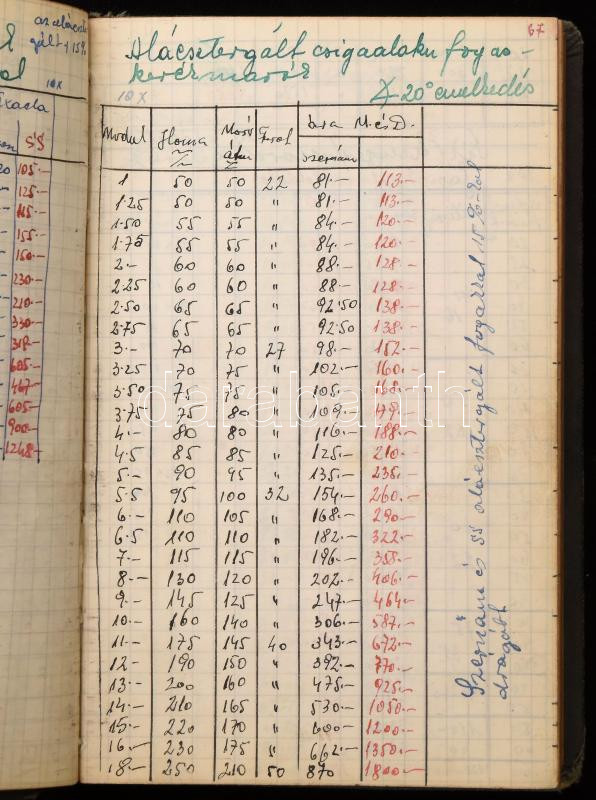 az alácsz
gált + 15%
10x
SS
105.-
125.-
115.-
155.-
160.-
230.-
210.-
330.-
318.-
605.-
467.-
605.-
900.-
1248.-
67
Alácsztergált csigaalaku fogas-
kerékmarók
10x
∡ 20° emelkedés
Modul Hossa Maró átm Furat ára M. és D.
szersám
1 50 50 22 81.- 113.-
1.25 50 50 " 81.- 113.-
1.50 55 55 " 84.- 120.-
1.75 55 55 " 84.- 120.-
2.- 60 60 " 88.- 128.-
2.25 60 60 " 88.- 128.-
2.50 65 65 " 92.50 138.-
2.75 65 65 " 92.50 138.-
3.- 70 70 27 98.- 152.-
3.25 70 75 " 102.- 160.-
3.50 75 75 " 105.- 168.-
3.75 75 80 " 109.- 179.-
4.- 80 80 " 116.- 188.-
4.5 85 85 " 125.- 210.-
5.- 90 95 " 135.- 235.-
5.5 95 100 32 154.- 260.-
6.- 110 105 " 168.- 290.-
6.5 110 110 " 182.- 322.-
7.- 115 115 " 196.- 358.-
8.- 130 120 " 202.- 406.-
9.- 145 125 " 247.- 464.-
10.- 160 140 " 306.- 587.-
11.- 175 145 40 343.- 672.-
12.- 190 150 " 392.- 770.-
13.- 200 160 " 475.- 925.-
14.- 210 165 " 530.- 1050.-
15.- 220 170 " 600.- 1200.-
16.- 230 175 " 662.- 1350.-
18.- 250 210 50 870 1800.-
Szersám és SS alácsztergált fogakkal 15%-kal
drágább
darabanth